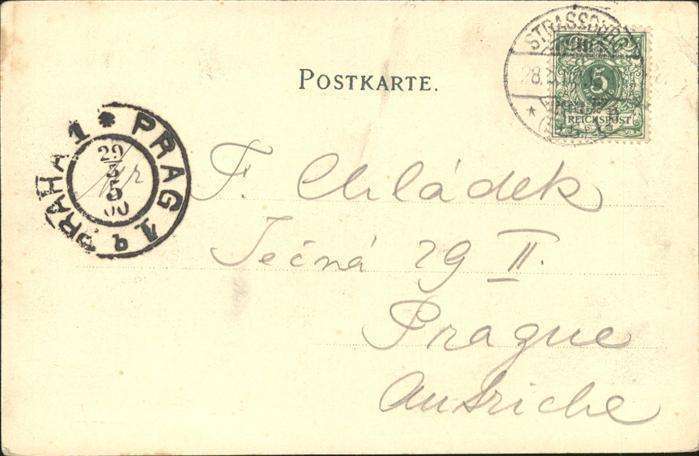 POSTKARTE.
STRASSBURG
28.
5
REICHSPOST
PRAG 1
PRAHA 1
29
5
00
F. Chládek
Ječná 29 II.
Prague
Autriche